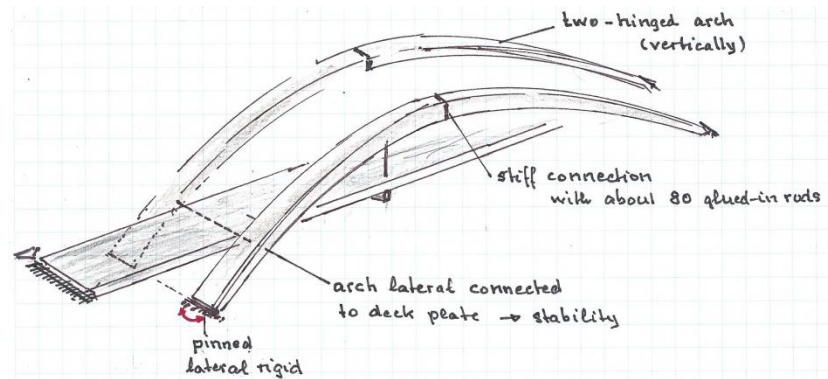 two-hinged arch
(vertically)
stiff connection
with about 80 glued-in rods
arch lateral connected
to deck plate → stability
pinned
lateral rigid